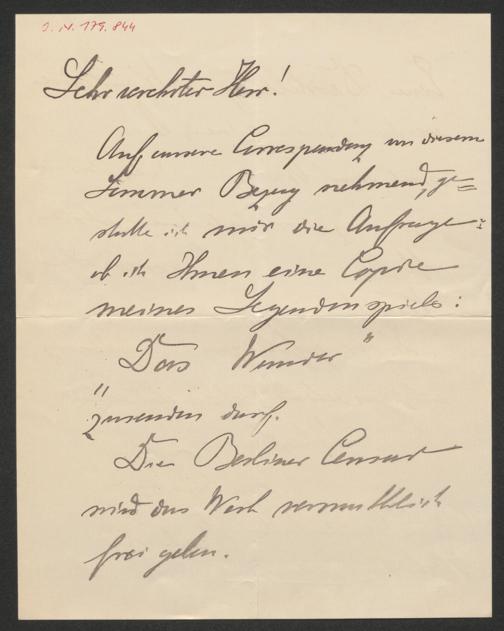 J. N. 179.844
Sehr verehrter Herr!
Auf unsere Correspondenz im diesem
Sommer Bezug nehmend, ge=
statte ich mir die Anfrage:
ob ich Ihnen eine Copie
meines Legendenspiels:
Das Wunder"
"zusenden darf.
Die Berliner Censur
wird das Werk vermuthlich
frei geben.